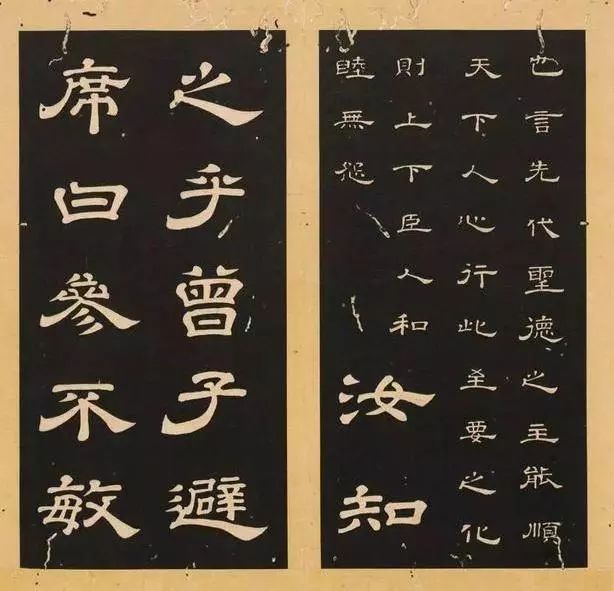 也言先代聖德之主能順
天下人心行此至要之化
則上下臣人和
睦無怨
汝知
之乎曾子避
席曰參不敏